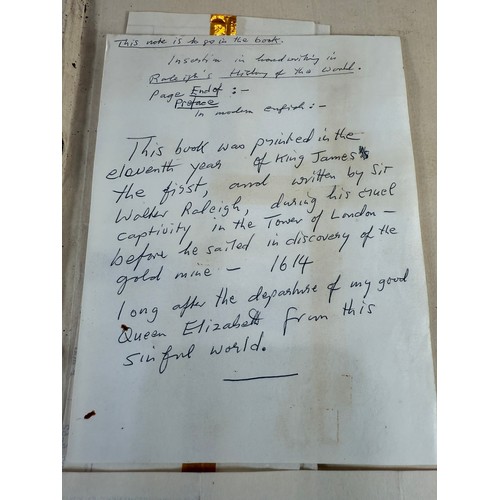 This note is to go in the book.
Insertion in handwriting in
Raleigh's History of the World.
Page End of :-
Preface
In modern english :-
This book was printed in the
eleventh year of King James
the first, and written by Sir
Walter Raleigh, during his cruel
captivity in the Tower of London -
before he sailed in discovery of the
gold mine - 1614
Long after the departure of my good
Queen Elizabeth from this
sinful world.